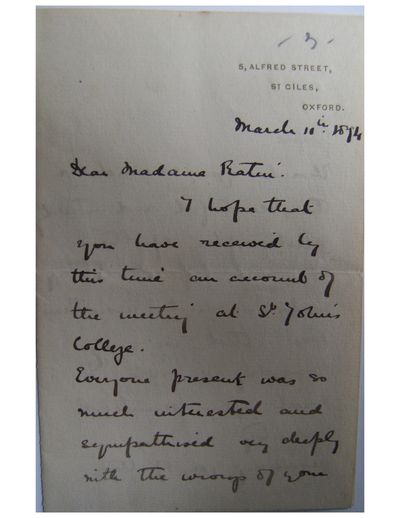 5, ALFRED STREET,
ST GILES,
OXFORD.
March 10th 1894
Dear Madame
I hope that
you have received by
this time an account of
the meeting at St John's
College.
Everyone present was so
much interested and
sympathised very deeply
with the wrongs of your